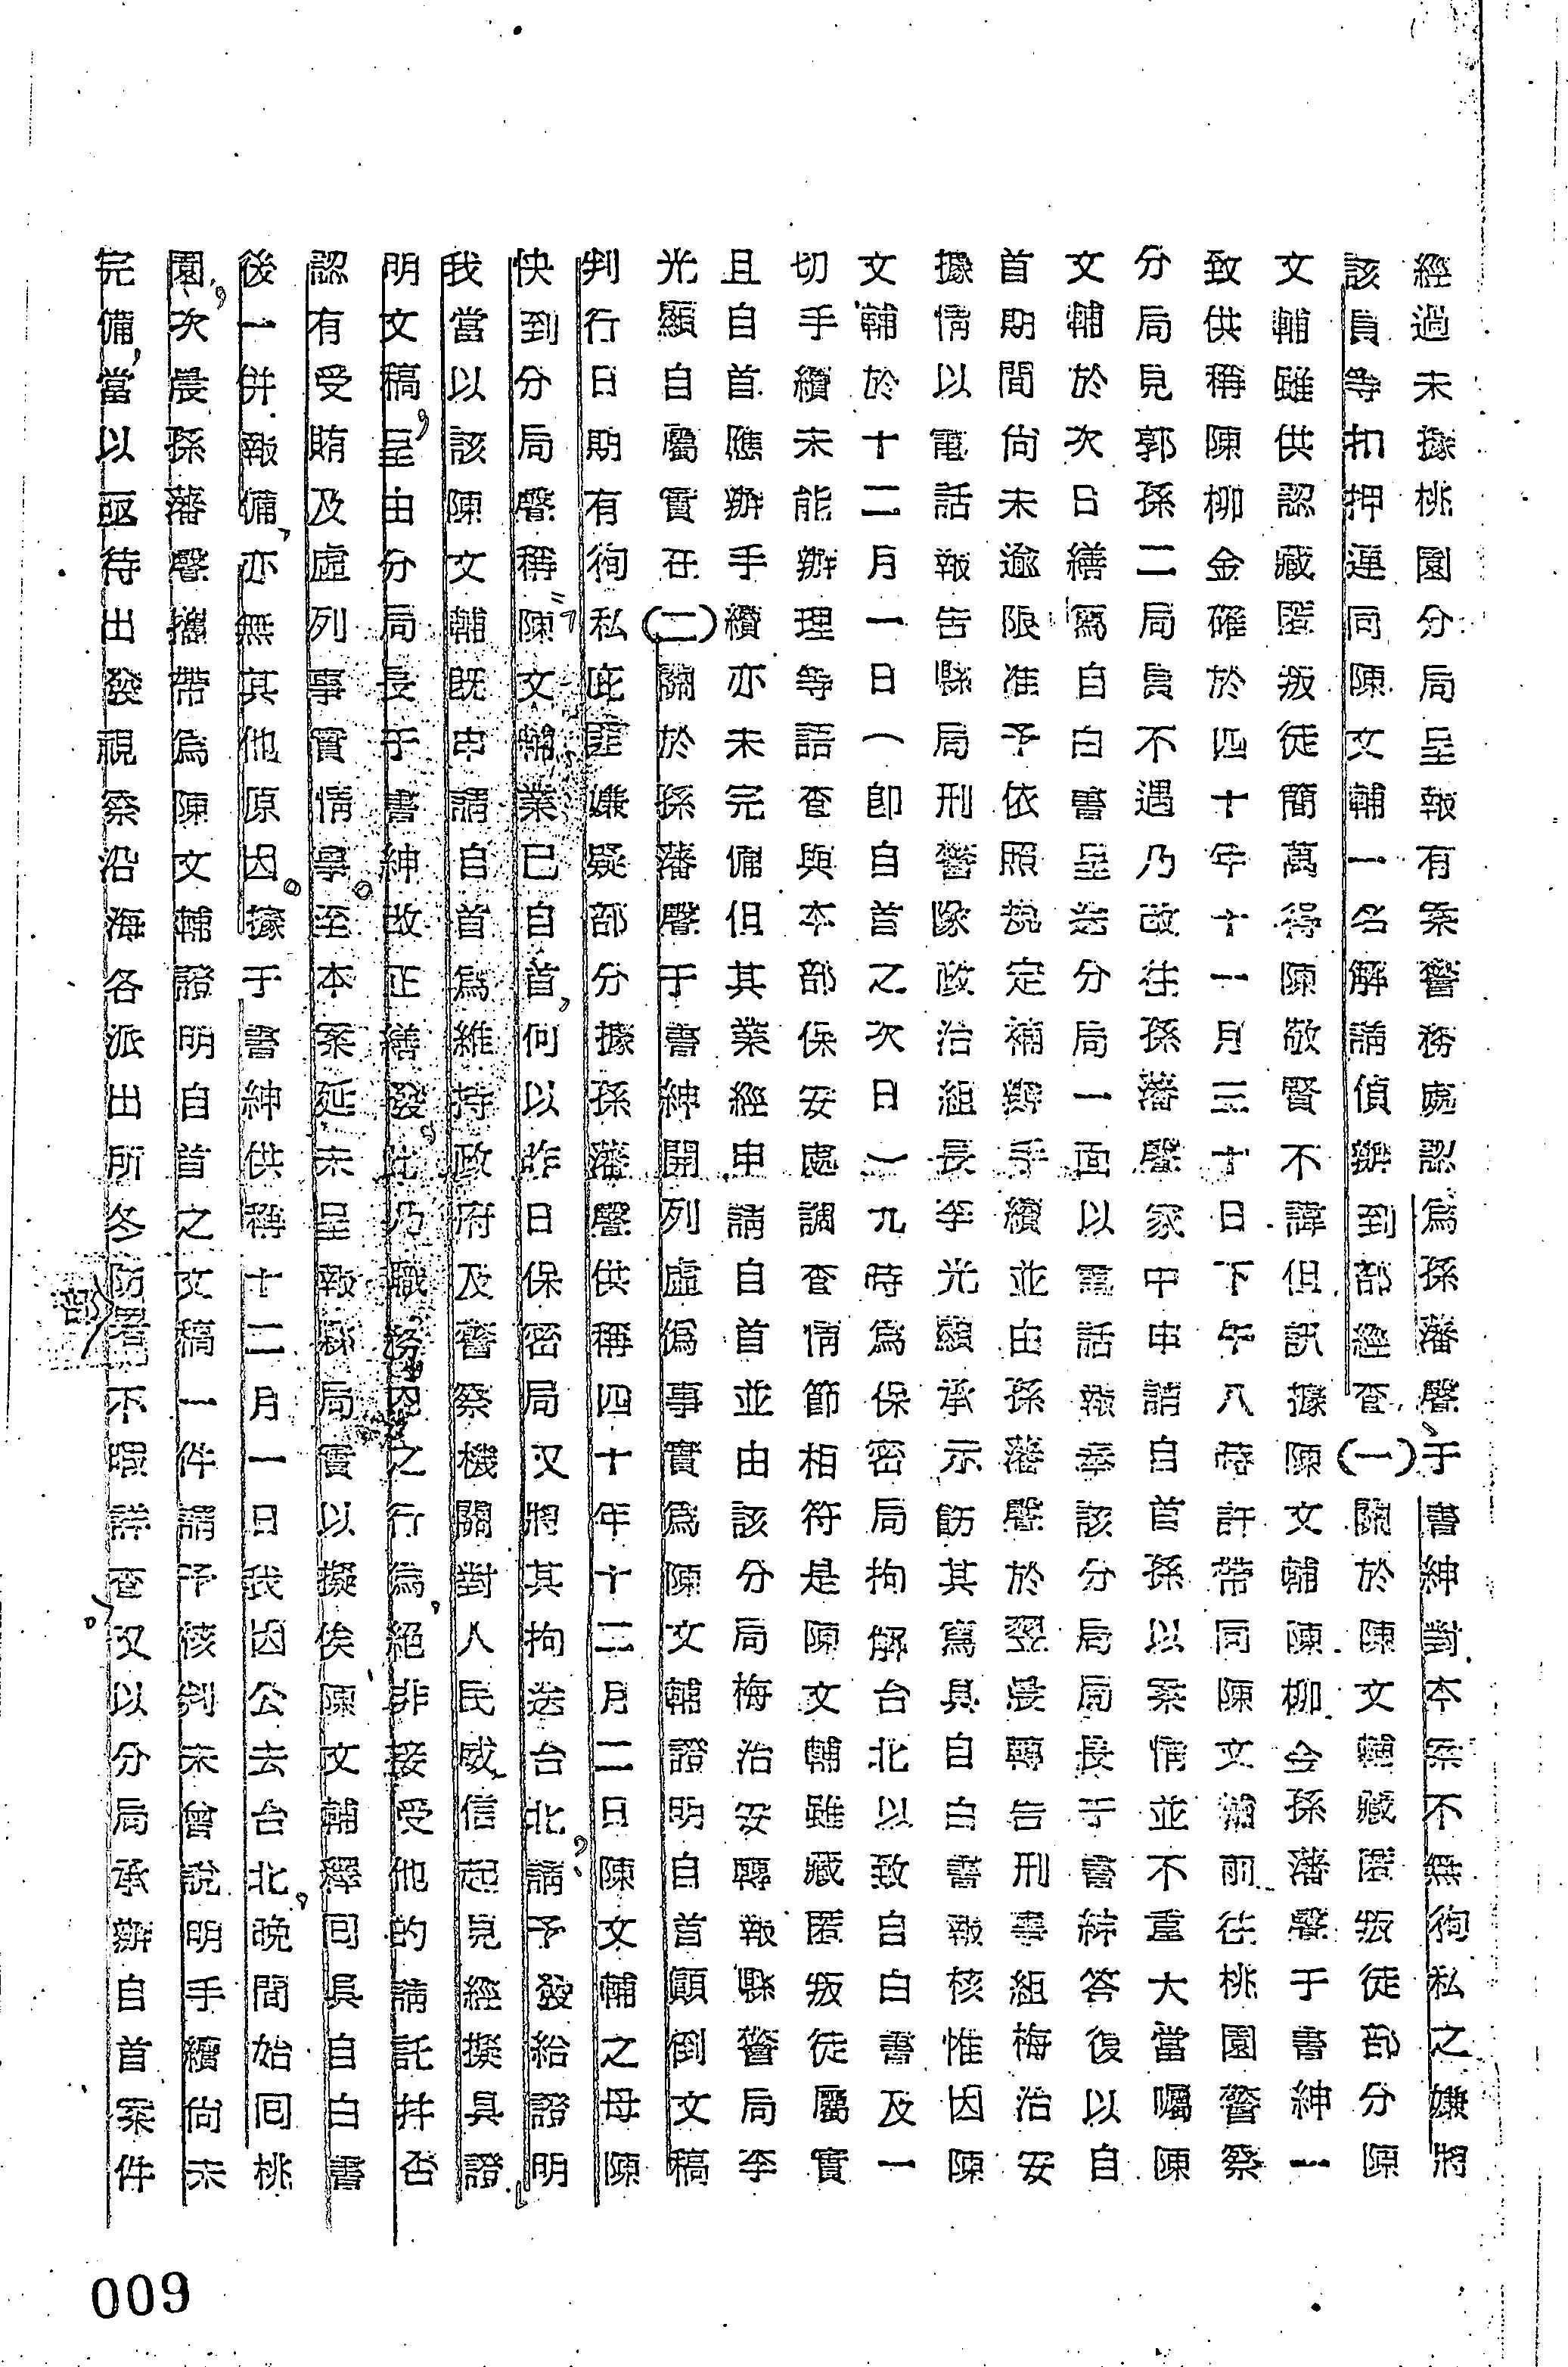 經過未據桃園分局呈報有案警務處認為孫藩聲、于書紳對本案不無徇私之嫌將
該員等扣押連同陳文輔一名解請偵辦到部經查(一)關於陳文輔藏匿叛徒部分陳
文輔雖供認藏匿叛徒簡萬得陳敬賢不諱但訊據陳文輔陳柳金孫藩聲于書紳一
致供稱陳柳金確於四十年十一月三十日下午八時許帶同陳文輔前往桃園警察
分局見郭孫二局員不遇乃改往孫藩聲家中申請自首孫以案情並不重大當囑陳
文輔於次日繕寫自白書呈送分局一面以電話報奉該分局局長于書紳答復以自
首期間尚未逾限准予依照規定補辦手續並由孫藩聲於翌晨轉告刑事組梅治安
據情以電話報告縣局刑警隊政治組長李光顯承示飭其寫具自白書報核惟因陳
文輔於十二月一日(即自首之次日)九時為保密局拘解台北以致自白書及一
切手續未能辦理等語查與本部保安處調查情節相符是陳文輔雖藏匿叛徒屬實
且自首應辦手續亦未完備但其業經申請自首並由該分局梅治安轉報縣警局李
光顯自屬實在(二)關於孫藩聲于書紳開列虛偽事實為陳文輔證明自首顛倒文稿
判行日期有徇私庇匪嫌疑部分據孫藩聲供稱四十年十二月二日陳文輔之母陳
快到分局聲稱「陳文輔業已自首,何以昨日保密局又將其拘送台北,請予發給證明
我當以該陳文輔既申請自首為維持政府及警察機關對人民威信起見經擬具證
明文稿,呈由分局長于書紳改正繕發,此乃職務內之行為,絕非接受他的請託并否
認有受賄及虛列事實情事。至本案延未呈報縣局實以擬俟陳文輔釋回具自白書
後一併報備,亦無其他原因。據于書紳供稱十二月一日我因公去台北,晚間始回桃
園,次晨孫藩聲攜帶為陳文輔證明自首之文稿一件請予核判未曾說明手續尚未
完備,當以亟待出發視察沿海各派出所冬防部署不暇詳查。又以分局承辦自首案件
009